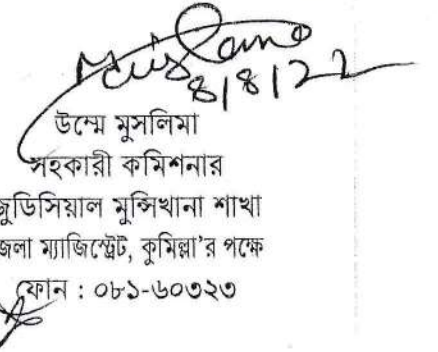 8/8/22
উম্মে মুসলিমা
সহকারী কমিশনার
জুডিসিয়াল মুন্সিখানা শাখা
জেলা ম্যাজিস্ট্রেট, কুমিল্লা'র পক্ষে
ফোন : ০৮১-৬০৩২৩